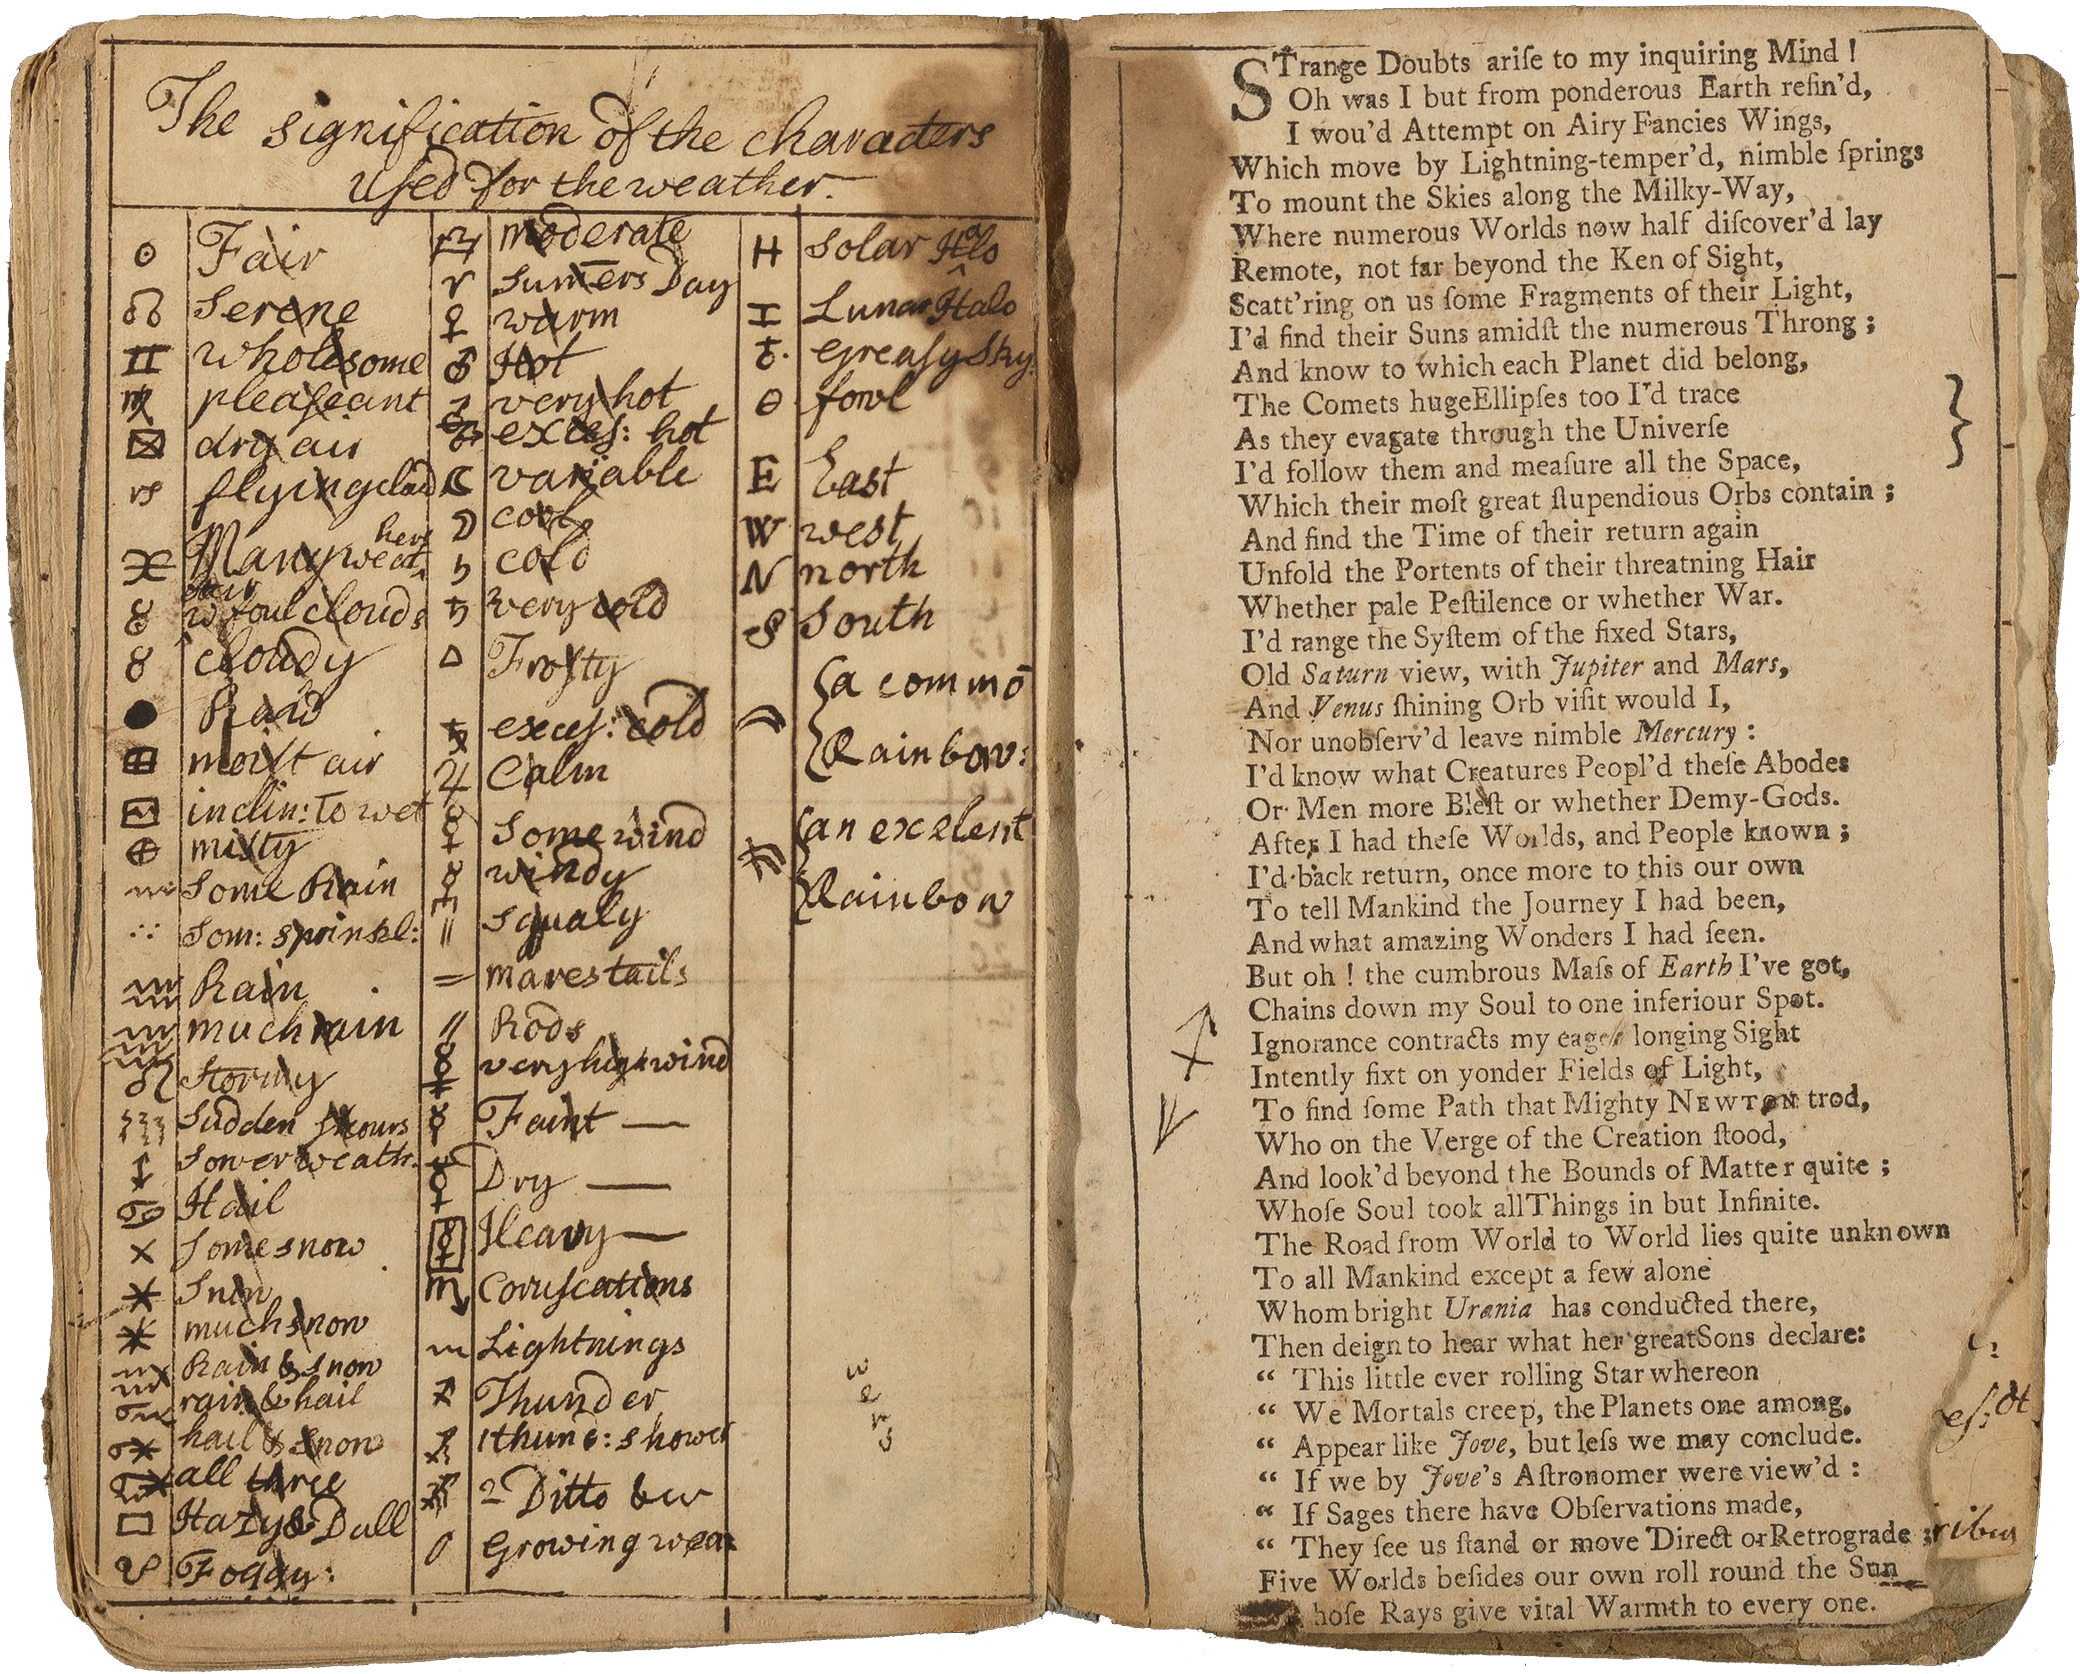 The signification of the characters
used for the weather.
Fair
Serene
wholesome
pleaſeant
dry air
flying cloud
Many weathers
wtout clouds
cloudy
moiſt air
inclin: to wet
miſty
Some Rain
Som: sprinkl:
Rain
much rain
Stormy
Sudden showrs
Sower weath.
Hail
Some snow
Snow
much snow
Rain & Snow
rain & hail
hail & snow
all three
Hazy & Dull
Foggy:
moderate
Sum̄ers Day
warm
Hot
very hot
exceſ: hot
variable
cool
cold
very cold
Froſty
exceſ: cold
Calm
Some wind
windy
Squaly
mares tails
Rods
very high wind
Faint —
Dry —
Heavy —
Coruſcations
Lightnings
Thunder
1 thund: shower
2 Ditto &w
Growing wea
H Solar Halo
Lunar Halo
Greaſy Sky.
fowl
E East
W west
N north
S South
a commō
Rainbow:
an excelent
Rainbow
STrange Doubts ariſe to my inquiring Mind !
Oh was I but from ponderous Earth refin'd,
I wou'd Attempt on Airy Fancies Wings,
Which move by Lightning-temper'd, nimble ſprings
To mount the Skies along the Milky-Way,
Where numerous Worlds now half diſcover'd lay
Remote, not far beyond the Ken of Sight,
Scatt'ring on us ſome Fragments of their Light,
I'd find their Suns amidſt the numerous Throng ;
And know to which each Planet did belong,
The Comets hugeEllipſes too I'd trace
As they evagate through the Univerſe
I'd follow them and meaſure all the Space,
Which their moſt great ſtupendious Orbs contain ;
And find the Time of their return again
Unfold the Portents of their threatning Hair
Whether pale Peſtilence or whether War.
I'd range the Syſtem of the fixed Stars,
Old Saturn view, with Jupiter and Mars,
And Venus ſhining Orb viſit would I,
Nor unobſerv'd leave nimble Mercury :
I'd know what Creatures Peopl'd theſe Abodes
Or Men more Bleſt or whether Demy-Gods.
After I had theſe Worlds, and People known ;
I'd back return, once more to this our own
To tell Mankind the Journey I had been,
And what amazing Wonders I had ſeen.
But oh ! the cumbrous Maſs of Earth I've got,
Chains down my Soul to one inferiour Spot.
Ignorance contracts my eager longing Sight
Intently fixt on yonder Fields of Light,
To find ſome Path that Mighty NEWTON trod,
Who on the Verge of the Creation ſtood,
And look'd beyond the Bounds of Matter quite ;
Whoſe Soul took allThings in but Infinite.
The Road from World to World lies quite unknown
To all Mankind except a few alone
Whom bright Urania has conducted there,
Then deign to hear what her greatSons declare:
“ This little ever rolling Star whereon
“ We Mortals creep, the Planets one among,
“ Appear like Jove, but leſs we may conclude.
“ If we by Jove's Aſtronomer were view'd :
“ If Sages there have Obſervations made,
“ They ſee us ſtand or move Direct or Retrograde ;
Five Worlds beſides our own roll round the Sun
hoſe Rays give vital Warmth to every one.